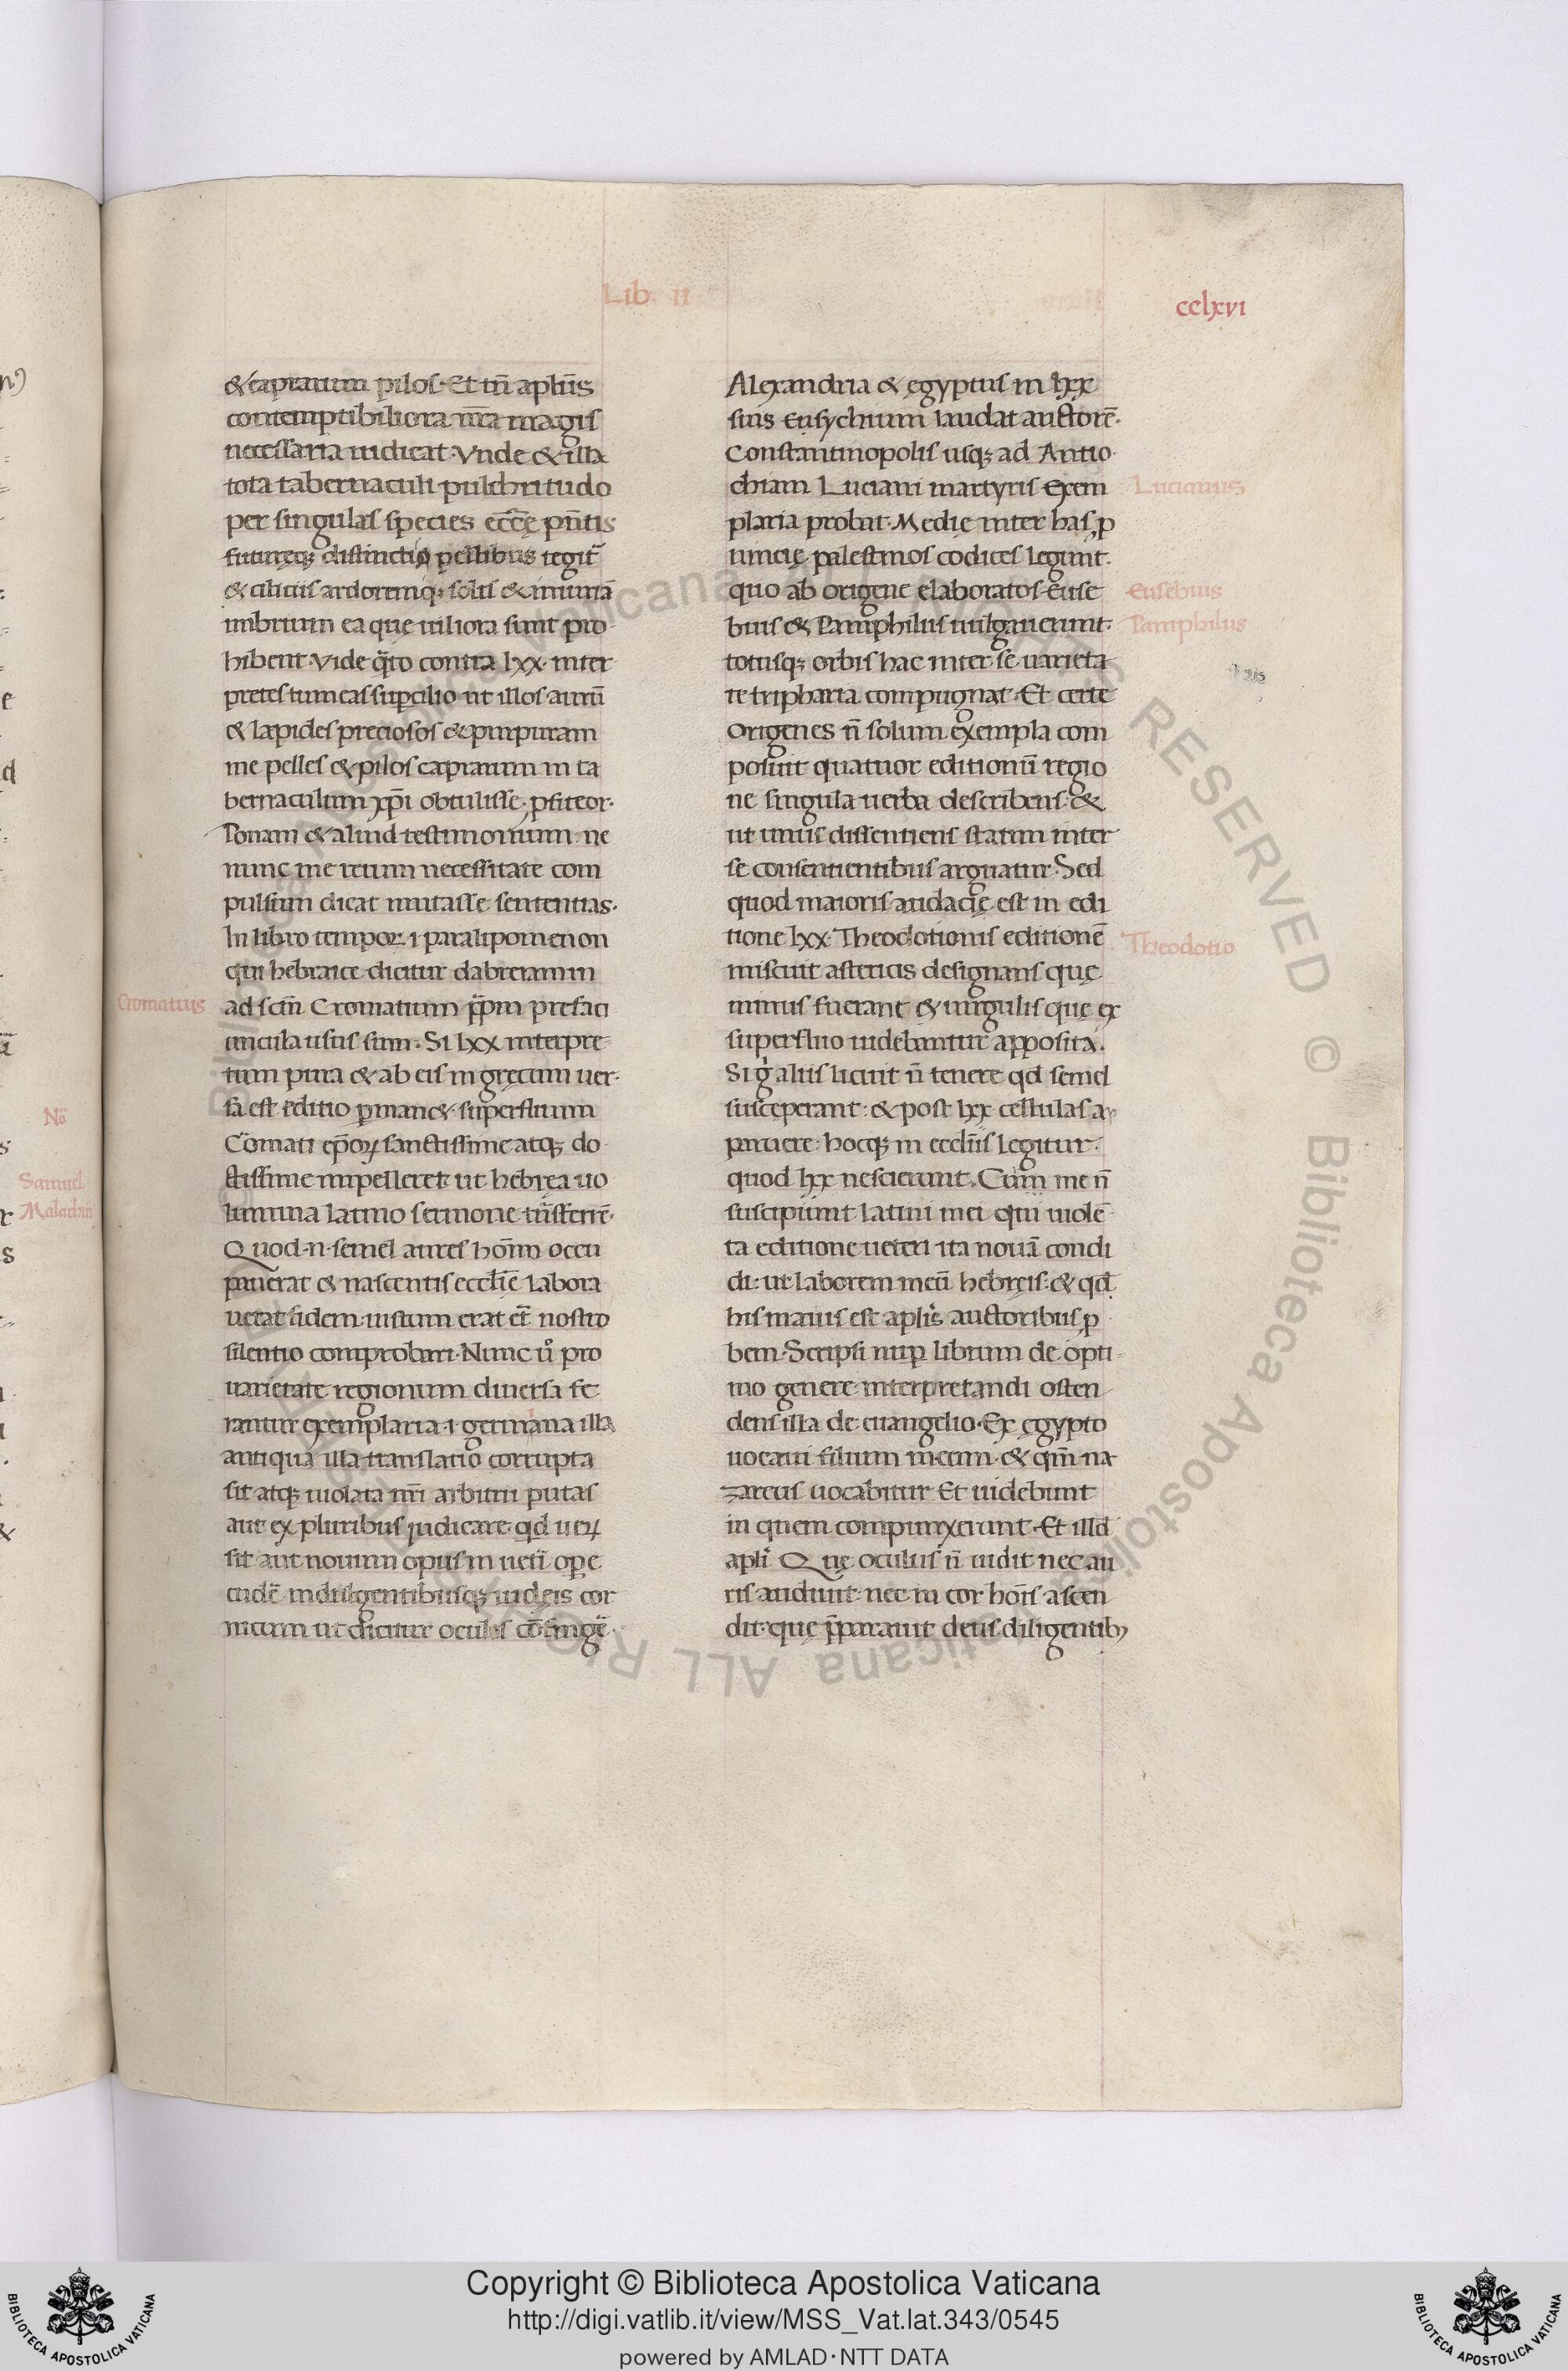 Lib II
cclxvi
& caprarum pilos. Et tn̄ apl'us
contemptibiliora nr̄a magis
necessaria iudicat. Vnde & illa
tota tabernaculi pulchritudo
per singulas species ecc̄ę pn̄tis
futuręq; distinctio pellibus tegit̃
& ciliciis ardoremq; solis & iniuriā
imbrium ea que uiliora sunt pro
hibent. Vide q̃to contra lxx. inter
pretes tumeas supcilio ut illos aurū
& lapides preciosos & purpuram
me pelles & pilos caprarum in ta
bernaculum xp̄i obtulisse pfiteor.
Ponam & aliud testimonium. ne
nunc me rerum necessitate com
pulsum dicat mutasse sententias.
In libro tempor. i. paralipomenon
qui hebraice dicitur dabreiamin
Cromatius
ad scm̄ Cromatium pp̄m prefaci
uncula usus sum. Si lxx interpre
tum pura & ab eis in gręcum uer
sa est editio pman& superfluum
Cōmati ep̄oꝝ sanctissime atq; do
ctissime impelleret ut hebręa uo
lumina latino sermone trāsferrē.
Quod. n. semel aures hōīm occu
pauerat & nascentis eccl'ię labora
uerat fidem iustum erat et̄ nostro
silentio comprobari. Nunc u̾o pro
uarietate regionum diuersa fe
rantur exemplaria. i. germana illa
antiqua illa translatio corrupta
sit atq; uiolata nr̄i arbitrii putas
aut ex pluribus iudicare qd ueꝝ
sit aut nouum opus in ueti̾ ope
cudē indulgentibusq; iudęis cor
nicum ut dicitur oculos cōfingẽ.
Alexandria & ęgyptus in lxx
suis Eusychium laudat auctorē.
Constantinopolis usq; ad Antio
chiam Luciani martyris exem
Lucianus
plaria probat. Medię inter has p
uincię palestinos codices legunt.
quo ab origene elaboratos Euse
Eusebius
bius & Pamphilus uulgauerunt.
Pamphilus
totusq; orbis hac inter se uarieta
te tripharia compugnat. Et certe
Origenes n̄ solum exempla com
posuit quatuor editionū regio
ne singula uerba describens. &
ut unus dissentiens statim inter
se consentientibus arguatur. Sed
quod maioris audacię est in edi
tione lxx. Theodotionis editionē
Theodotio
miscuit astericis designans quę
minus fuerant & uirgulis quę ex
superfluo uidebantur apposita.
Si g̾ aliis licuit n̄ tenere qd semel
susceperant: & post lxx cellulas a
paruere hocq; in eccl'iis legitur.
quod lxx nescierunt. Cum me n̄
suscipiunt latini mei qui uiolē
ta editione ueteri ita nouā condi
di: ut laborem meū hebręis. & qd
his maius est apl'is auctoribus p
bem. Scripsi nup librum de opti
mo genere interpretandi osten
dens illa de euangelio. Ex ęgypto
uocaui filium meum. & qm̄ na
zareus uocabitur Et uidebunt
in quem compunxerunt. Et illd
apl'i Quę oculus n̄ uidit nec au
ris audiuit nec in cor hoīs ascen
dit quę pparauit deus diligentib;
Nō
Samuel
Maladim
Copyright © Biblioteca Apostolica Vaticana
http://digi.vatlib.it/view/MSS_Vat.lat.343/0545
powered by AMLAD·NTT DATA
BIBLIOTECA APOSTOLICA VATICANA
BIBLIOTECA APOSTOLICA VATICANA